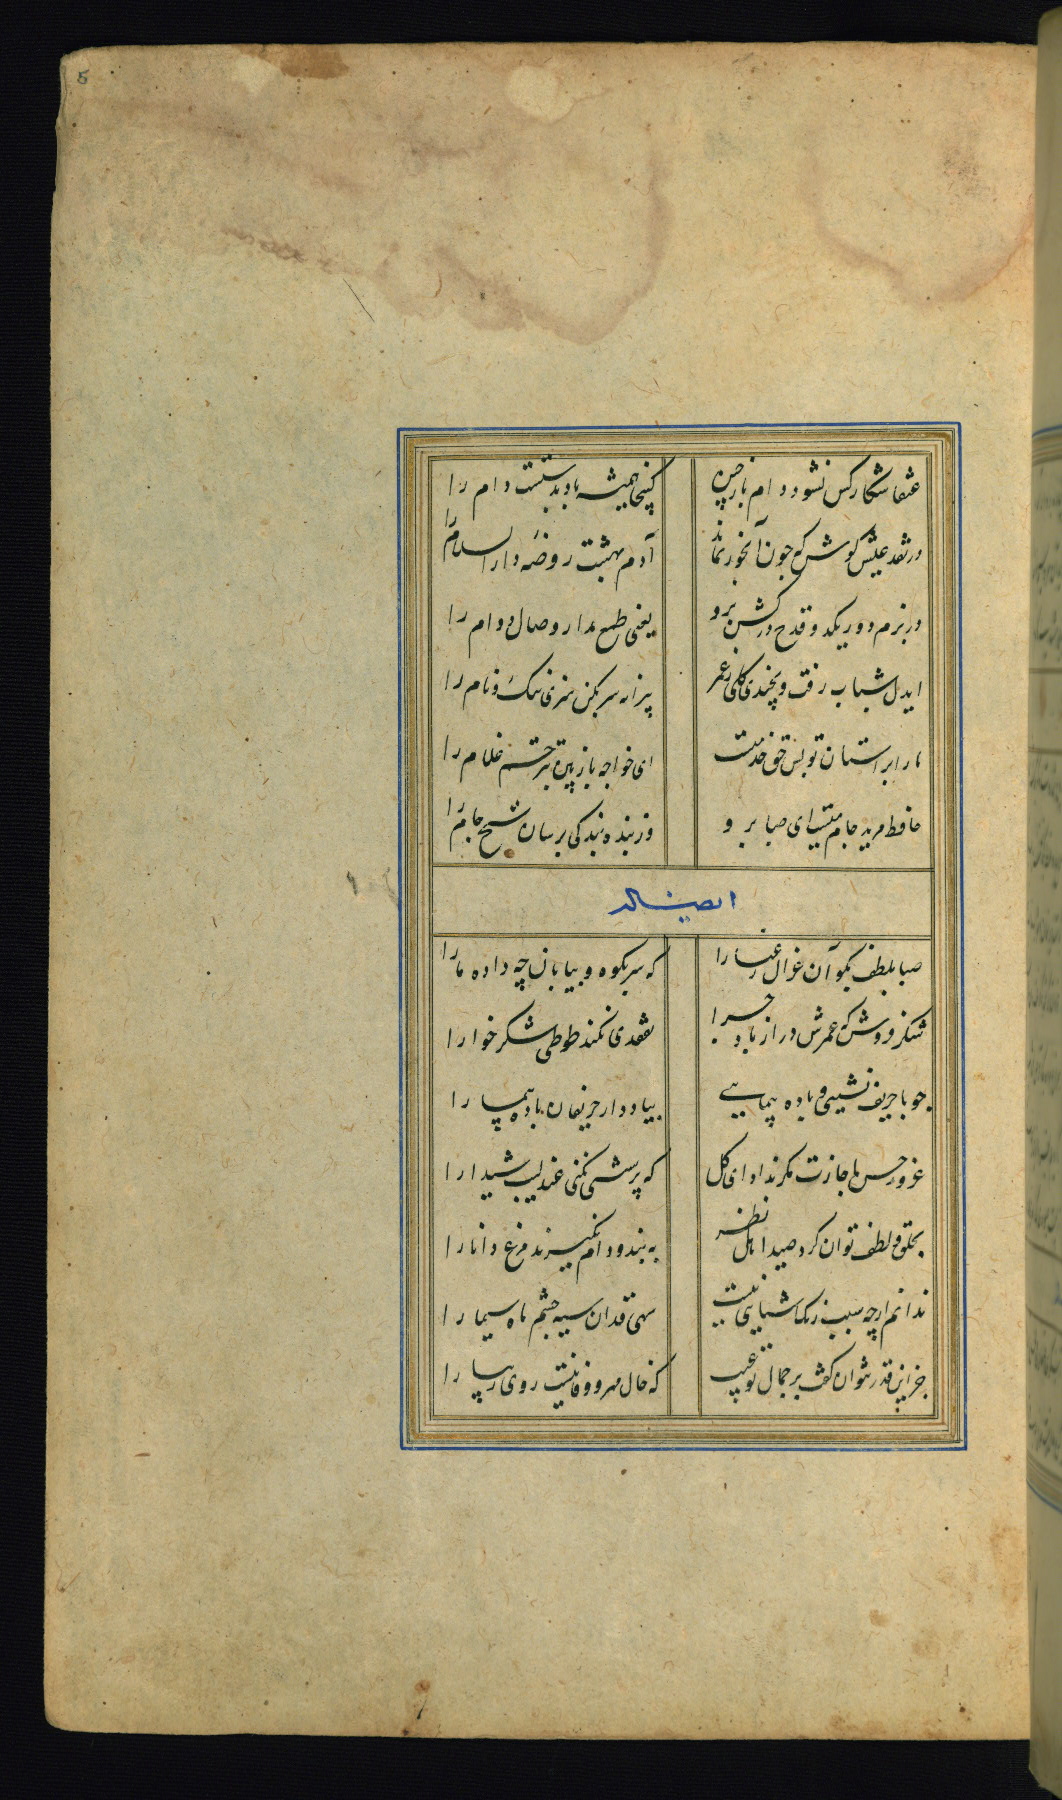 5
عنقا شکار کس نشود دام باز چین
کینجا همیشه باد بدستست دام را
در نقد عیش کوش که چون آبخور نماند
آدم بهشت روضه دار السلام را
در بزم دور یکدو قدح درکش و برو
یعنی طمع مدار وصال دوام را
ایدل شباب رفت و نچیدی کلی ز عمر
پیرانه سر بکن هنری ننک و نام را
ما را بر استان تو بس حق خدمتست
ای خواجه باز بین بترحم غلام را
حافظ مرید جام میست ای صبا برو
وز بنده بندکی برسان شیخ جام را
ایضا له
صبا بلطف بکو آن غزال رعنا را
که سر بکوه و بیابان چه داده ما را
شکر فروش که عمرش دراز باد چرا
تفقدی نکند طوطی شکر خوارا
چو با حریف نشینی و باده پیمایی
بیاد دار حریفان باده پیما را
غرور حسن اجازت مکر نداد ای کل
که پرسشی نکنی عندلیب شیدا را
بخلق و لطف توان کرد صید اهل نظر
به بند و دام نکیرند مرغ دانا را
ندانم از چه سبب رنک اشنایی نیست
سهی قدان سیه چشم ماه سیما را
جز این قدر نتوان کفت بر جمال تو عیب
که خال مهر و وفا نیست روی زیبا را